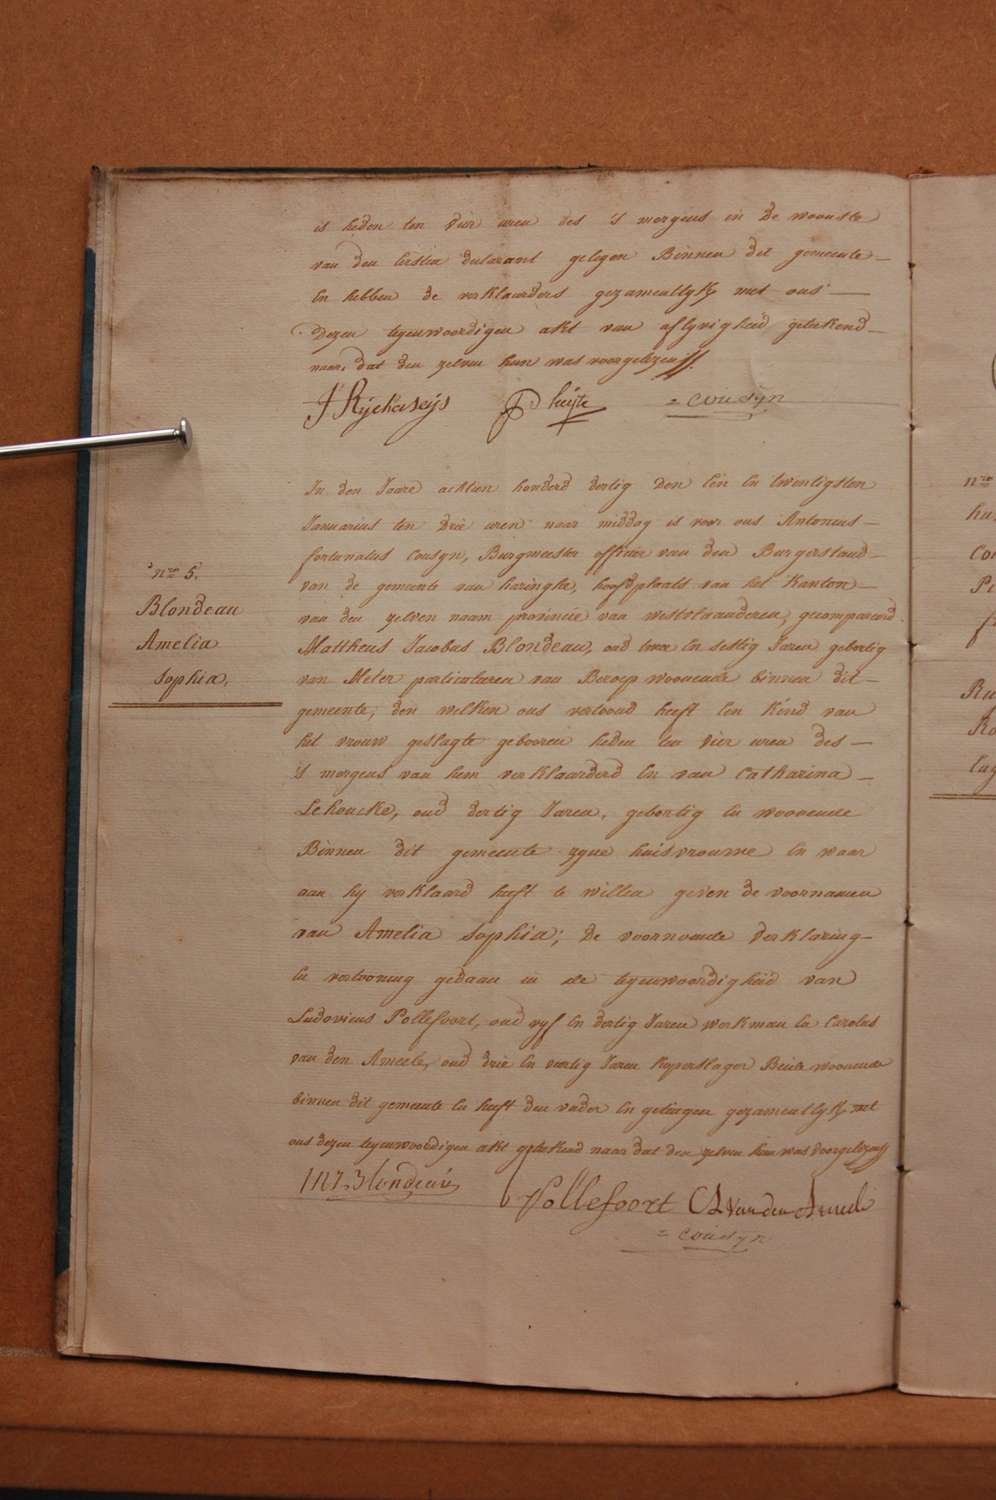 is heden ten vier uren des 's morgens in de wooniste
van den eersten declarant gelegen Binnen dit gemeente
En hebben de verklaarders gezamentlyk met ons
Dezen tegenwoordigen akt van aflyvigheid geteekend
naar dat den zelven hun was voorgelezen
Ryckaseys P huyte = cousyn
In den Jaare achtien honderd dertig den Een En twintigsten
Januarius ten drie uren naar middag is voor ons Antonius
fortunatus Cousyn, Burgmeester officier van den Burgerstand
van de gemeente van haringhe, hoofdplaats van het kanton
van den zelven naam provincie van westvlaanderen, gecompareerd
nro 5.
Blondeau
Amelia
Sophia,
Mattheus Jacobus Blondeau, oud twee En sestig Jaren geboortig
van Meter particulieren van Beroep woonende binnen dit
gemeente, den welken ons vertoond heeft Een Kind van
het vrouw geslagte gebooren heden ten vier uren des
's morgens van hem verklaarderd En van Catharina
Lehoucke, oud dertig Jaren, gebortig En woonende
Binnen dit gemeente zyne huisvrouwe En waar
aan hy verklaard heeft te willen geven de voornamen
van Amelia Sophia; de voornoemde verklaring
En vertooning gedaan in de tegenwoordigheid van
Ludovicus Pollefoort, oud vyf En dertig Jaren werkman En Carolus
van den Ameele, oud drie En veertig Jaren koperslager Beide woonende
binnen dit gemeente En heeft den vader En getuigen gezamentlyk met
ons dezen tegenwoordigen akt geteekend naar dat den zelven hun was voorgelezen
M J Blondeau Pollefoort C L Van den Ameele
= cousyn
nro